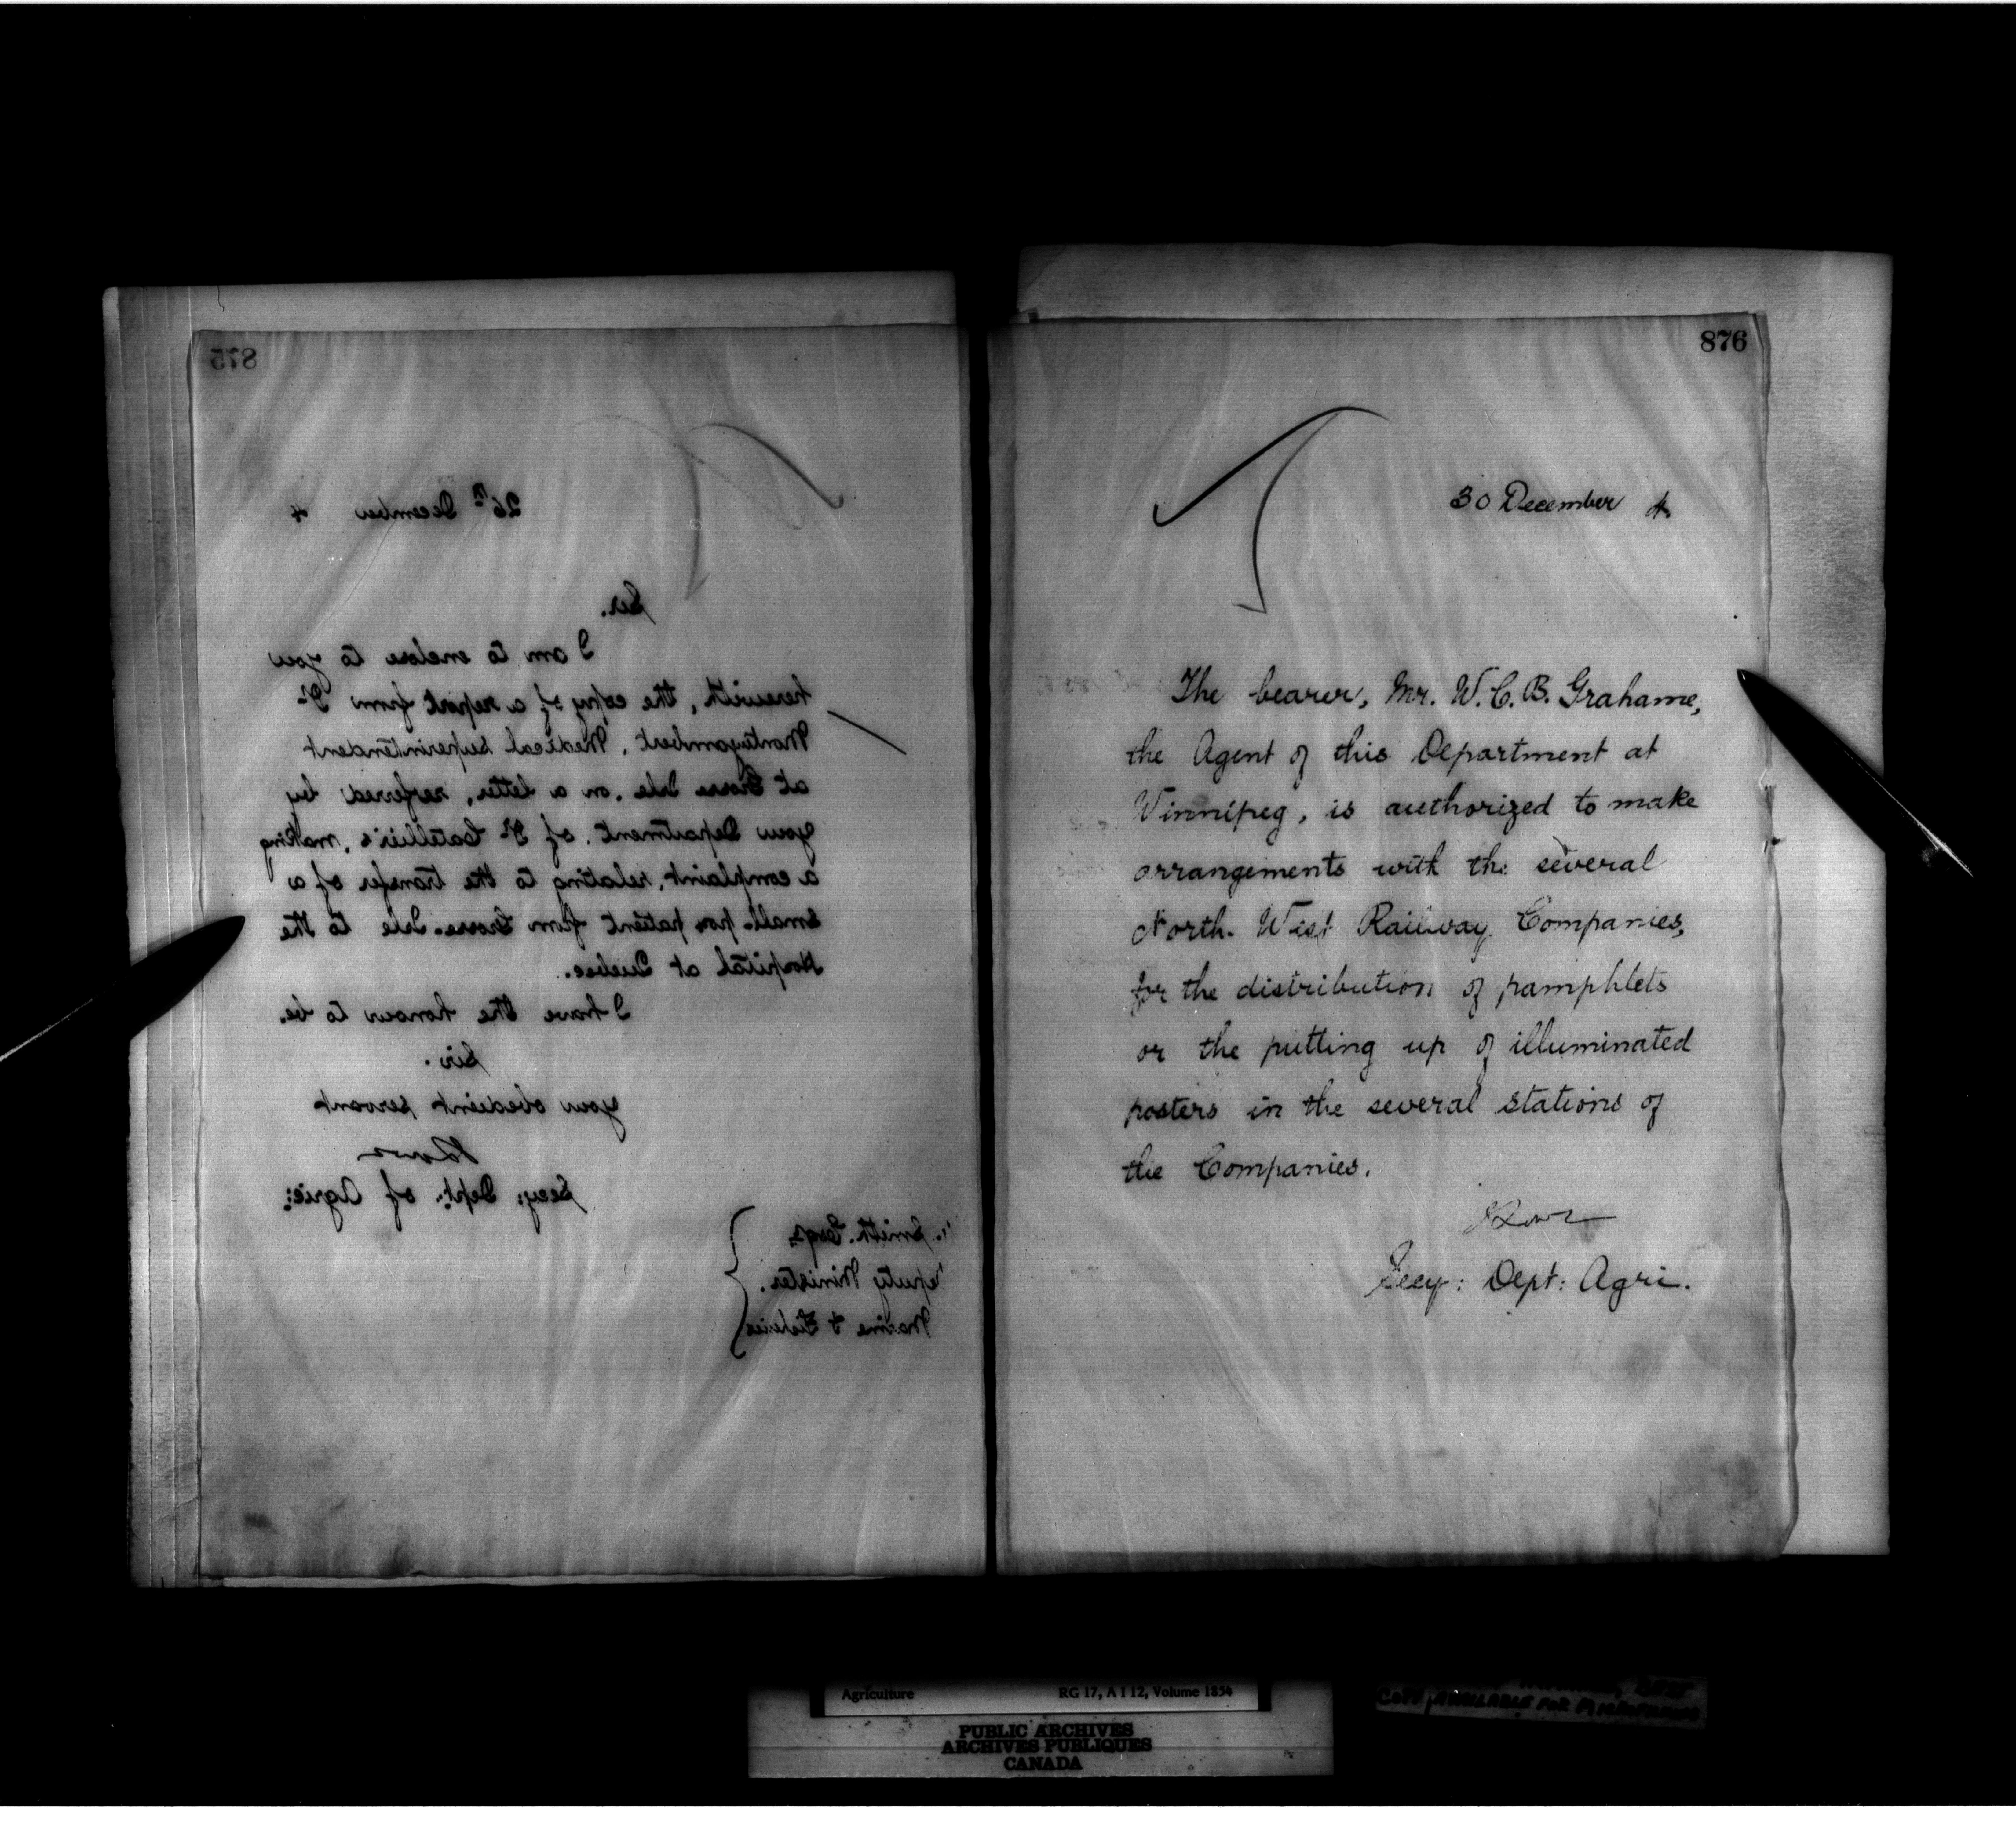 875
26th December 4
Sir.
I am to enclose to you
herewith, the copy of a report from Dr
Montizambert, Medical Superintendent
at Grosse Isle, on a letter, referred by
your Department, of Dr Catellier's, making
a complaint, relating to the transfer of a
small-pox patient from Grosse-Isle to the
Hospital at Quebec.
I have the honour to be,
Sir.
your obedient servant
Secy: Dept: of Agric:
Smith. Esqr
eputy Minister.
Marine & Fisheries
876
30 December 4
The bearer, Mr. W. C. B. Grahame,
the Agent of this Department at
Winnipeg, is authorized to make
arrangements with the several
North-West Railway Companies,
for the distribution of pamphlets
or the putting up of illuminated
posters in the several stations of
the Companies.
Secy: Dept: Agri.
Agriculture RG 17, A I 12, Volume 1654
COPY AVAILABLE FOR
PUBLIC ARCHIVES
ARCHIVES PUBLIQUES
CANADA